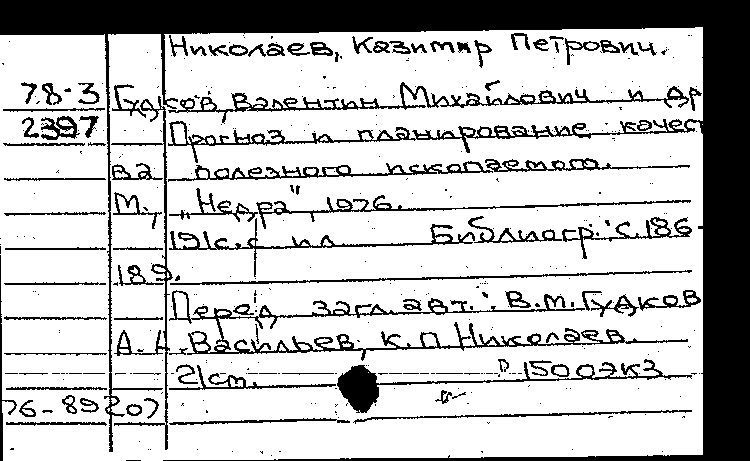 Николаев, Казимир Петрович.
78-3 Гудков, Валентин Михайлович и др
2397 Прогноз и планирование качест
ва полезного ископаемого.
М., „Недра", 1976.
191с. с ил Библиогр.: с.186-
189.
Перед загл. авт.: В.М.Гудков
А.А.Васильев, К.П.Николаев.
21см. 1500экз
76-89207